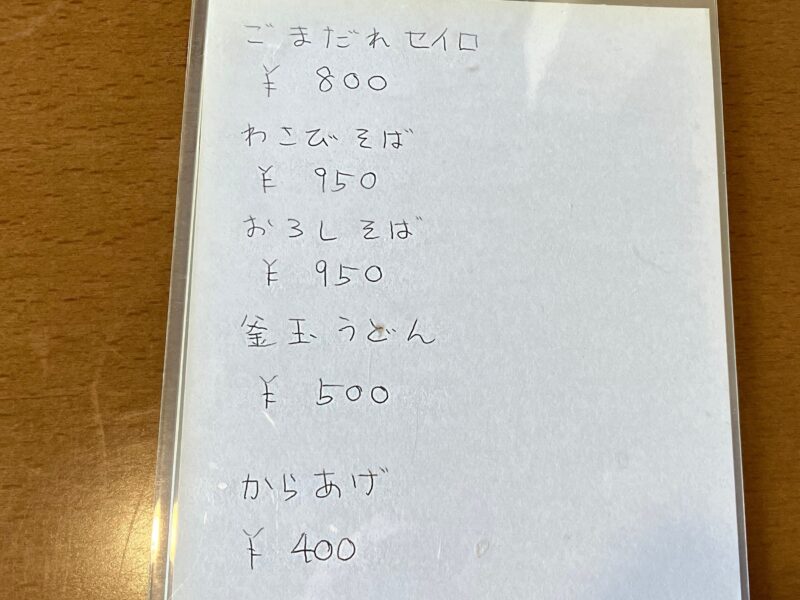 ごまだれセイロ
¥ 800
わさびそば
¥ 950
おろしそば
¥ 950
釜玉うどん
¥ 500
からあげ
¥ 400